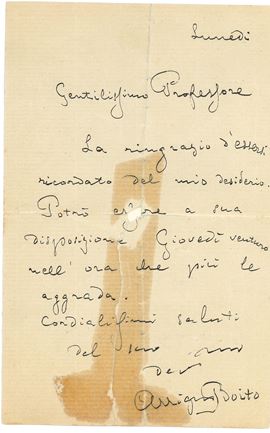 Lunedì
Gentilissimo Professore
La ringrazio d'essersi
ricordato del mio desiderio.
Potrò essere a sua
disposizione Giovedì venturo
nell'ora che più le
aggrada.
Cordialissimi saluti
del suo
dev
Arrigo Boito